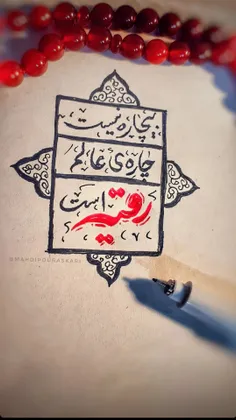 بیچاره نیست
چاره‌ی عالم
رقیه است